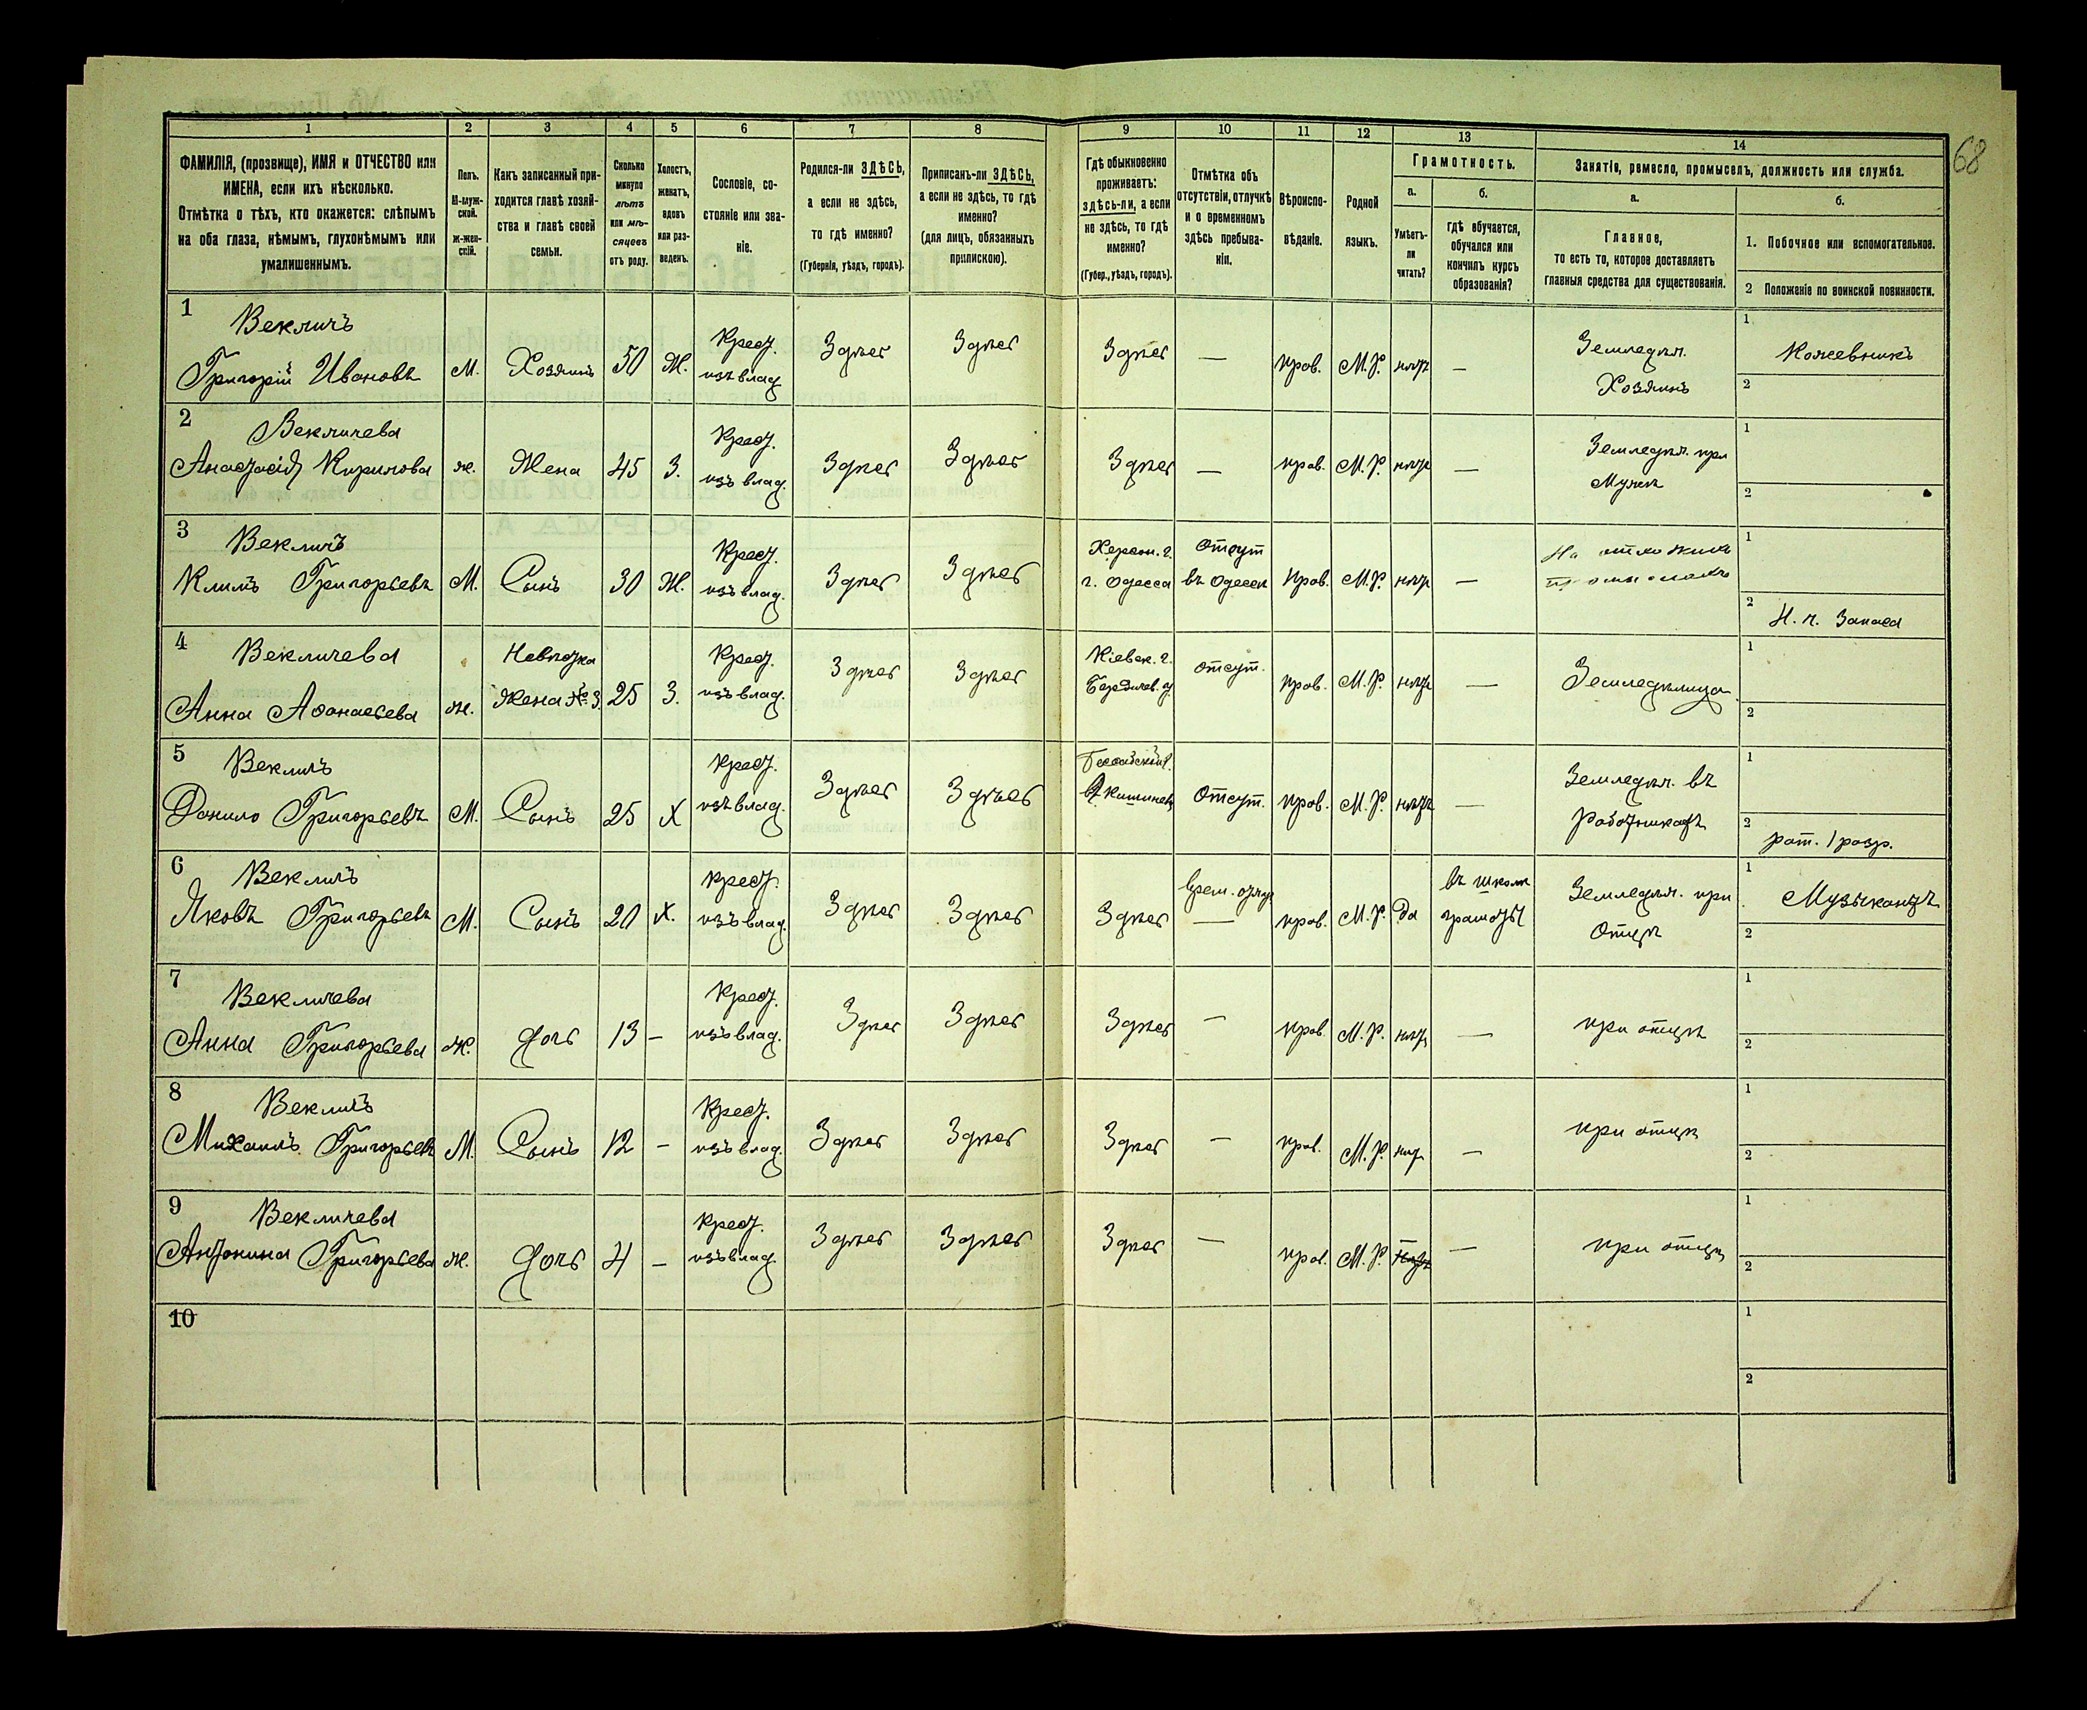 68
1 2 3 4 5 6 7 8 9 10 11 12 13 14
ФАМИЛІЯ, (прозвище), ИМЯ и ОТЧЕСТВО или
ИМЕНА, если ихъ нѣсколько.
Отмѣтка о тѣхъ, кто окажется: слѣпымъ
на оба глаза, нѣмымъ, глухонѣмымъ или
умалишеннымъ.
Полъ.
М-муж-
ской.
ж-жен-
скій.
Какъ записанный при-
ходится главѣ хозяй-
ства и главѣ своей
семьи.
Сколько
минуло
лѣтъ
или мѣ-
сяцевъ
отъ роду.
Холостъ,
женатъ,
вдовъ
или раз-
веденъ.
Сословіе, со-
стояніе или зва-
ніе.
Родился-ли ЗДѢСЬ,
а если не здѣсь,
то гдѣ именно?
(Губернія, уѣздъ, городъ).
Приписанъ-ли ЗДѢСЬ,
а если не здѣсь, то гдѣ
именно?
(для лицъ, обязанныхъ
припискою).
Гдѣ обыкновенно
проживаетъ:
здѣсь-ли, а если
не здѣсь, то гдѣ
именно?
(Губер., уѣздъ, городъ).
Отмѣтка объ
отсутствіи, отлучкѣ
и о временномъ
здѣсь пребыва-
ніи.
Вѣроиспо-
вѣданіе.
Родной
языкъ.
Грамотность.
а.
Умѣетъ-
ли
читать?
б.
гдѣ обучается,
обучался или
кончилъ курсъ
образованія?
Занятіе, ремесло, промыселъ, должность или служба.
а.
Главное,
то есть то, которое доставляетъ
главныя средства для существованія.
б.
1. Побочное или вспомогательное.
2 Положеніе по воинской повинности.
1
Векличъ
Григорій Ивановъ
М.
Хозяинъ
50
Ж.
Крест.
изъ влад.
Здѣсь
Здѣсь
Здѣсь
—
прав.
М.Р.
нѣтъ
—
Земледѣл.
Хозяинъ
1
Кожевникъ
2
2
Векличева
Анастасія Кирилова
ж.
Жена
45
З.
Крест.
изъ влад.
Здѣсь
Здѣсь
Здѣсь
—
прав.
М.Р.
нѣтъ
—
Земледѣл. при
Мужѣ
1
2
3
Векличъ
Климъ Григорьевъ
М.
Сынъ
30
Ж.
Крест.
изъ влад.
Здѣсь
Здѣсь
Херсон. г.
г. Одесса
отсут
въ Одессѣ
прав.
М.Р.
нѣтъ
—
На отхожихъ
промыслахъ
1
2
Н. ч. Запаса
4
Векличева
Анна Афанасьева
ж.
Невѣстка
Жена № 3.
25
З.
Крест.
изъ влад.
Здѣсь
Здѣсь
Кіевск. г.
Бердичев. у.
отсут.
прав.
М.Р.
нѣтъ
—
Земледѣлица
1
2
5
Векличъ
Данило Григорьевъ
М.
Сынъ
25
Х
Крест.
изъ влад.
Здѣсь
Здѣсь
Отсут.
прав.
М.Р.
нѣтъ
—
Земледѣл. въ
работникахъ
1
2
рат. 1 разр.
6
Векличъ
Яковъ Григорьевъ
М.
Сынъ
20
Х.
Крест.
изъ влад.
Здѣсь
Здѣсь
Здѣсь
врем.
—
прав.
М.Р.
Да
въ школѣ
грамоты
Земледѣл. при
Отцѣ
1
Музыкантъ
2
7
Векличева
Анна Григорьева
ж.
дочь
13
—
Крест.
изъ влад.
Здѣсь
Здѣсь
Здѣсь
—
прав.
М.Р.
нѣтъ
—
при отцѣ
1
2
8
Векличъ
Михаилъ Григорьевъ
М.
Сынъ
12
—
Крест.
изъ влад.
Здѣсь
Здѣсь
Здѣсь
—
прав.
М.Р.
нѣт
—
при отцѣ
1
2
9
Векличева
Антонина Григорьева
ж.
дочь
4
—
Крест.
изъ влад.
Здѣсь
Здѣсь
Здѣсь
—
прав.
М.Р.
—
нѣтъ
—
при отцѣ
1
2
10
1
2